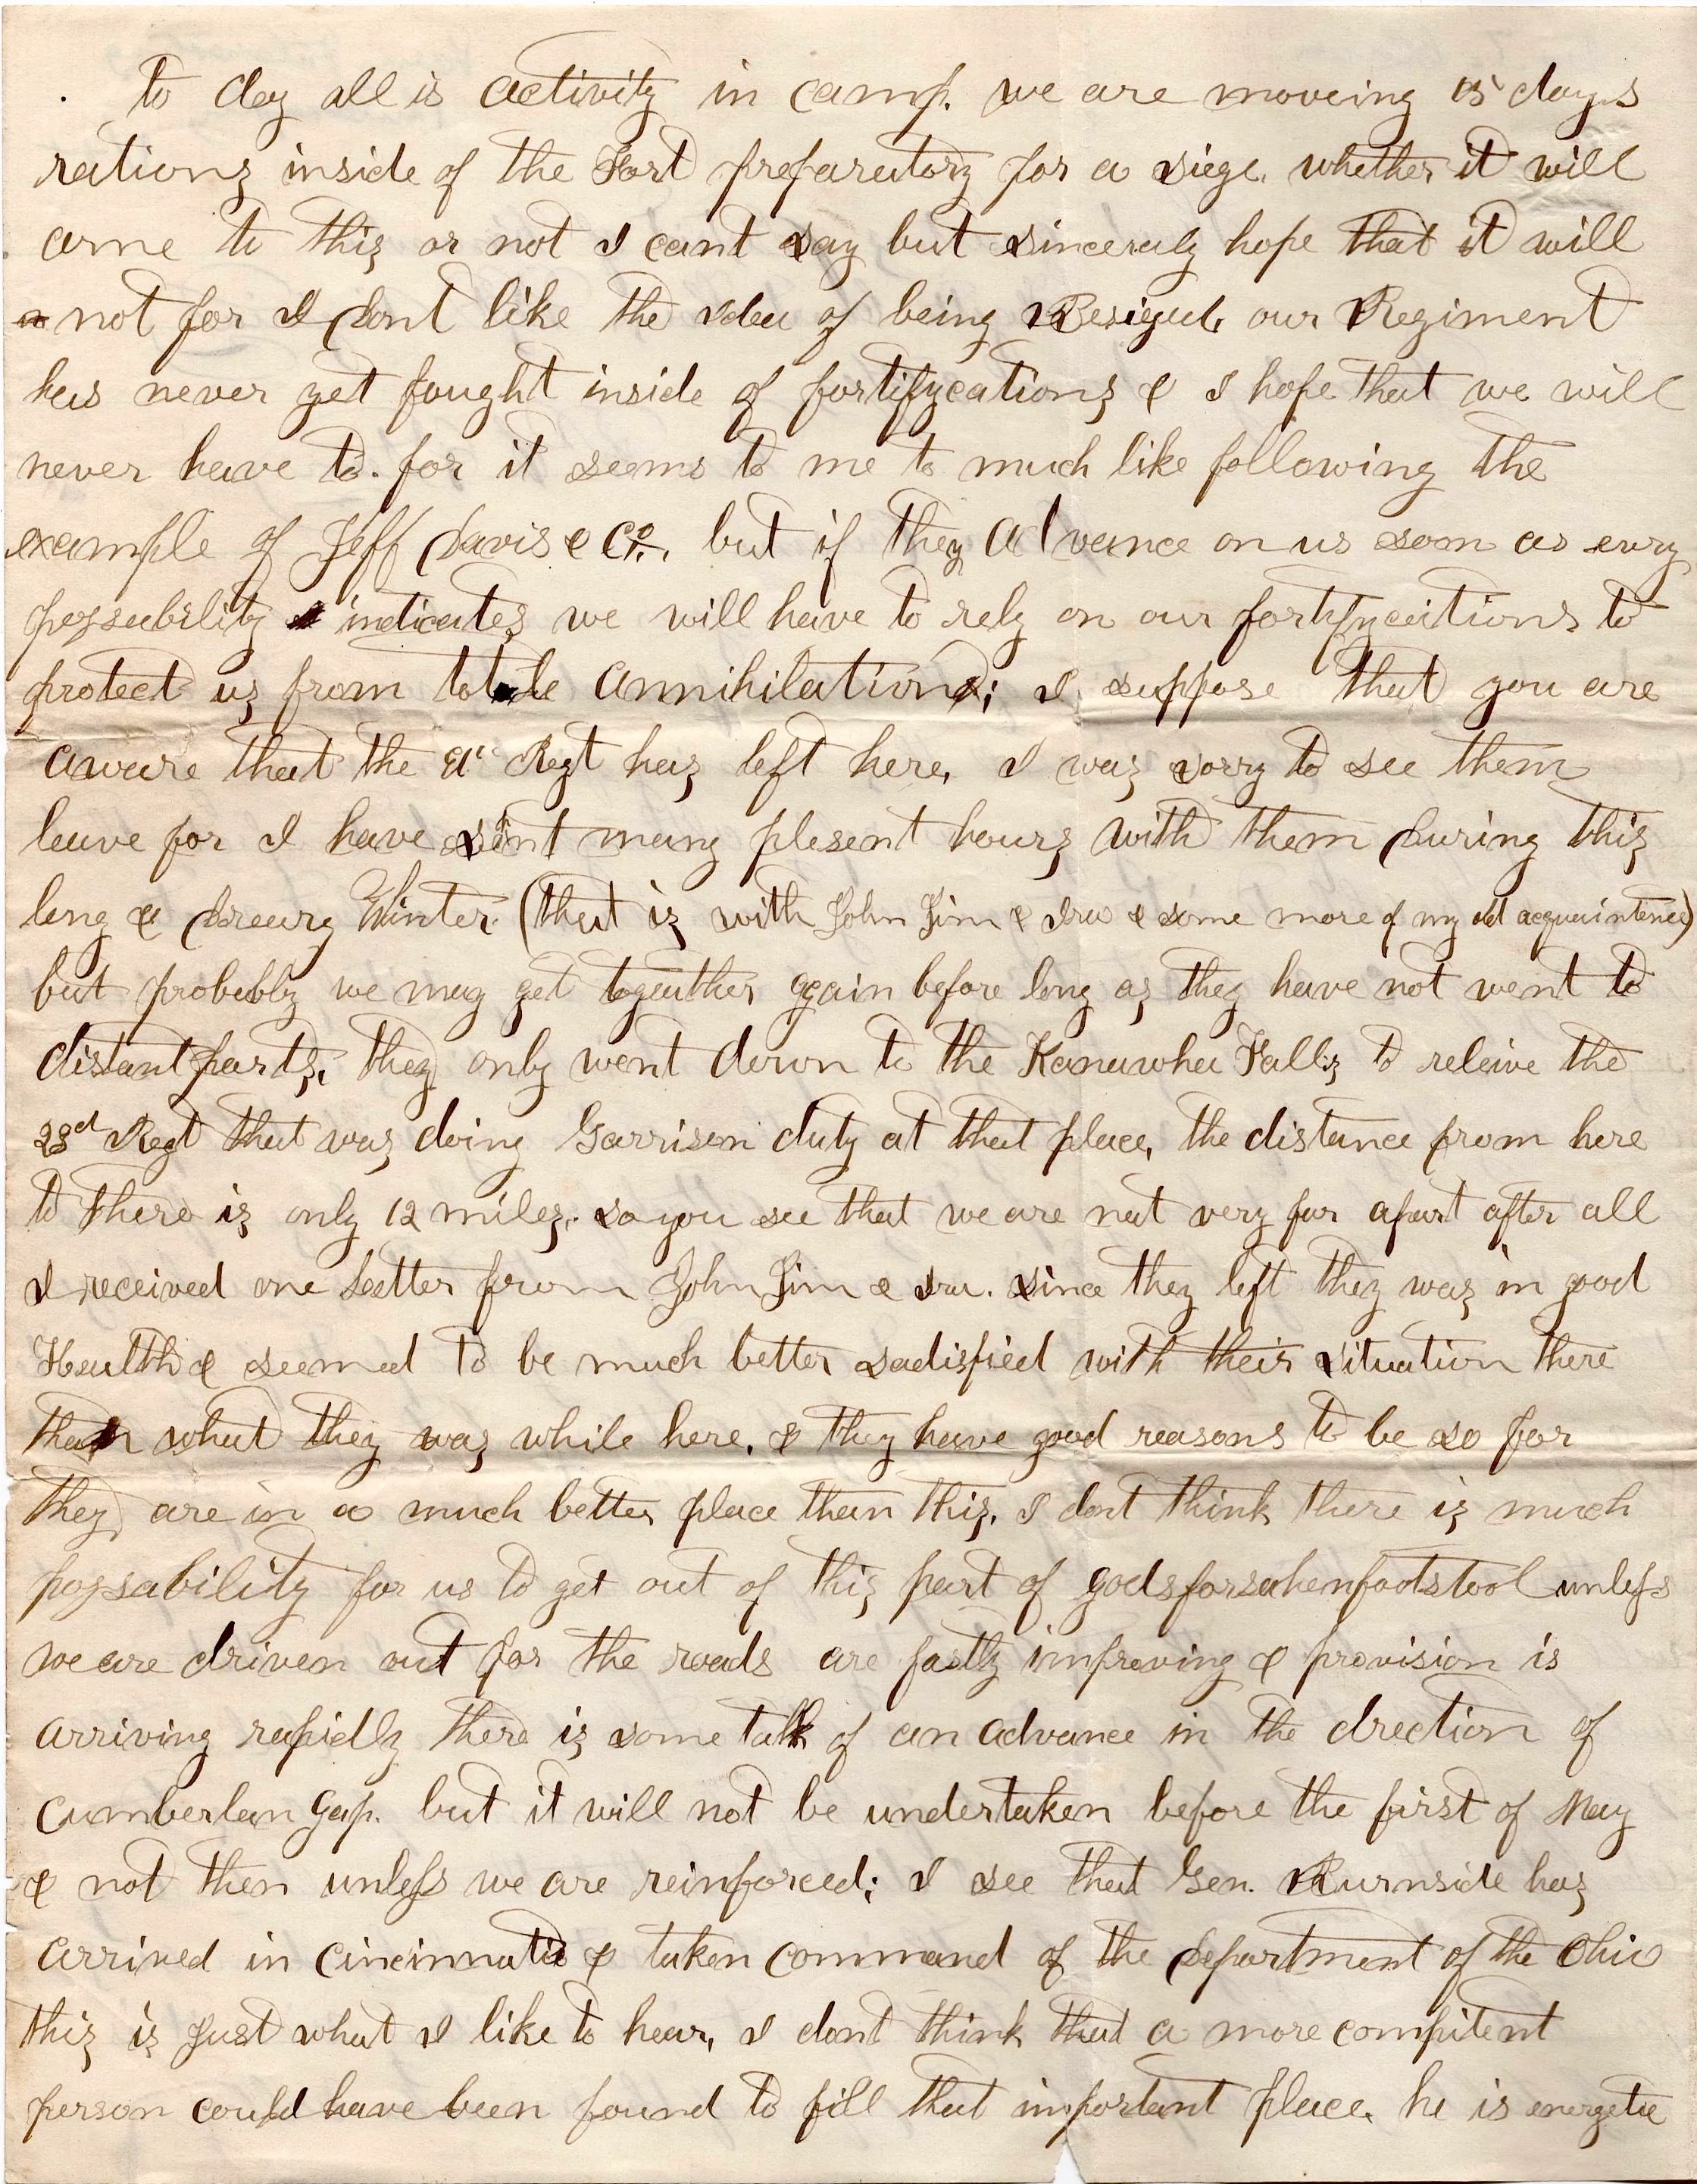 to day all is activity in camp. we are moveing 15 days
rations inside of the Fort preparatory for a siege. whether it will
come to this or not I cant say but sinceraly hope that it will
not for I dont like the idea of being Besiged, our Regiment
has never yet fought inside of fortifycations & I hope that we will
never have to. for it seems to me to much like following the
example of Jeff Davis & Co. but if they advance on us soon as evry
possability indicates we will have to rely on our fortifycations to
protect us from totale annihilation; I suppose that you are
aware that the Regt has left here, I was sorry to see them
leave for I have spent many plesent hours with them During this
long & Dreary Winter. (that is with John Jim & Dru & some more of my old acquaintence)
but probebly we may get togeather again before long as they have not went to
distant parts, they only went down to the Kanawha Falls to releive the
23d Regt that was doing Garrison duty at that place, the distance from here
to there is only 12 miles, so you see that we are not very far apart after all
I received one Letter from John Jim & Dru. since they left they was in good
Health & seemed to be much better sadisfied with their situation there
than what they was while here. & they have good reasons to be so for
they are in a much better place than this. I dont think there is much
possability for us to get out of this part of godsforsakenfootstool unless
we are driven out for the roads are fastly improving & provision is
arriving rapidly there is some talk of an advance in the drection of
Cumberlan Gap. but it will not be undertaken before the first of May
& not then unless we are reinforced; I see that Gen. Burnside has
arrived in cincinnati & taken command of the Department of the Ohio
this is Just what I like to hear, I dont think that a more compitent
person could have been found to fill that important place. he is energetic